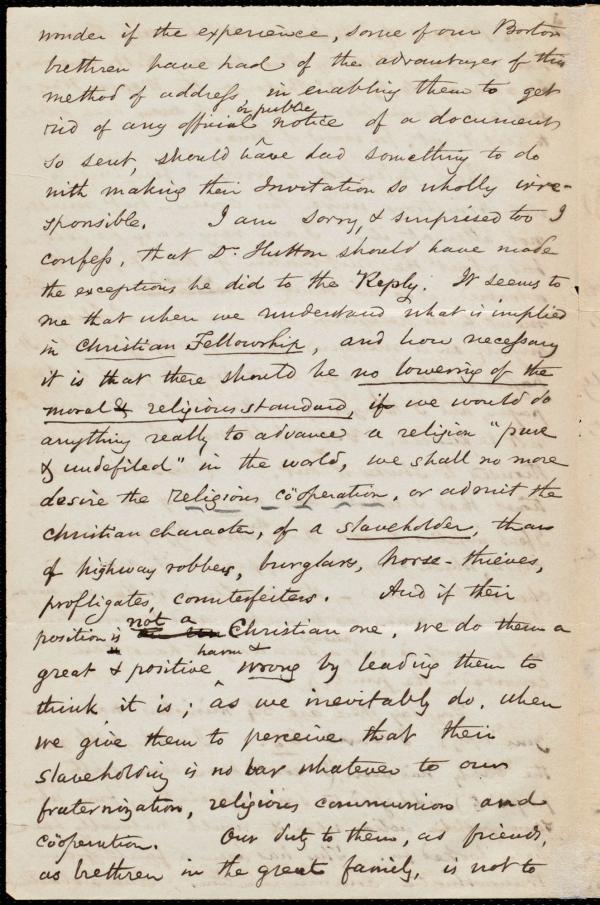 wonder if the experience, some of our Boston
brethren have had of the advantages of this
method of address, in enabling them to get
rid of any official or public notice of a document
so sent, should have had something to do
with making their Invitation so wholly irre-
sponsible. I am sorry, & surprised too I
confess, that Dr. Hutton should have made
the exceptions he did to the Reply. It seems to
me that when we understand what is implied
in Christian Fellowship, and how necessary
it is that there should be no lowering of the
moral & religious standard, if we would do
anything really to advance a religion "pure
& undefiled" in the world, we shall no more
desire the religious coöperation, or admit the
Christian character, of a slaveholder, than
of highway robbers, burglars, horse-thieves,
profligates, counterfeiters. And if their
position is not a Christian one, we do them a
great & positive harm & wrong by leading them to
think it is; as we inevitably do, when
we give them to perceive that their
slaveholding is no bar whatever to our
fraternization, religious communion and
coöperation. Our duty to them, as friends,
as brethren in the great family, is not to